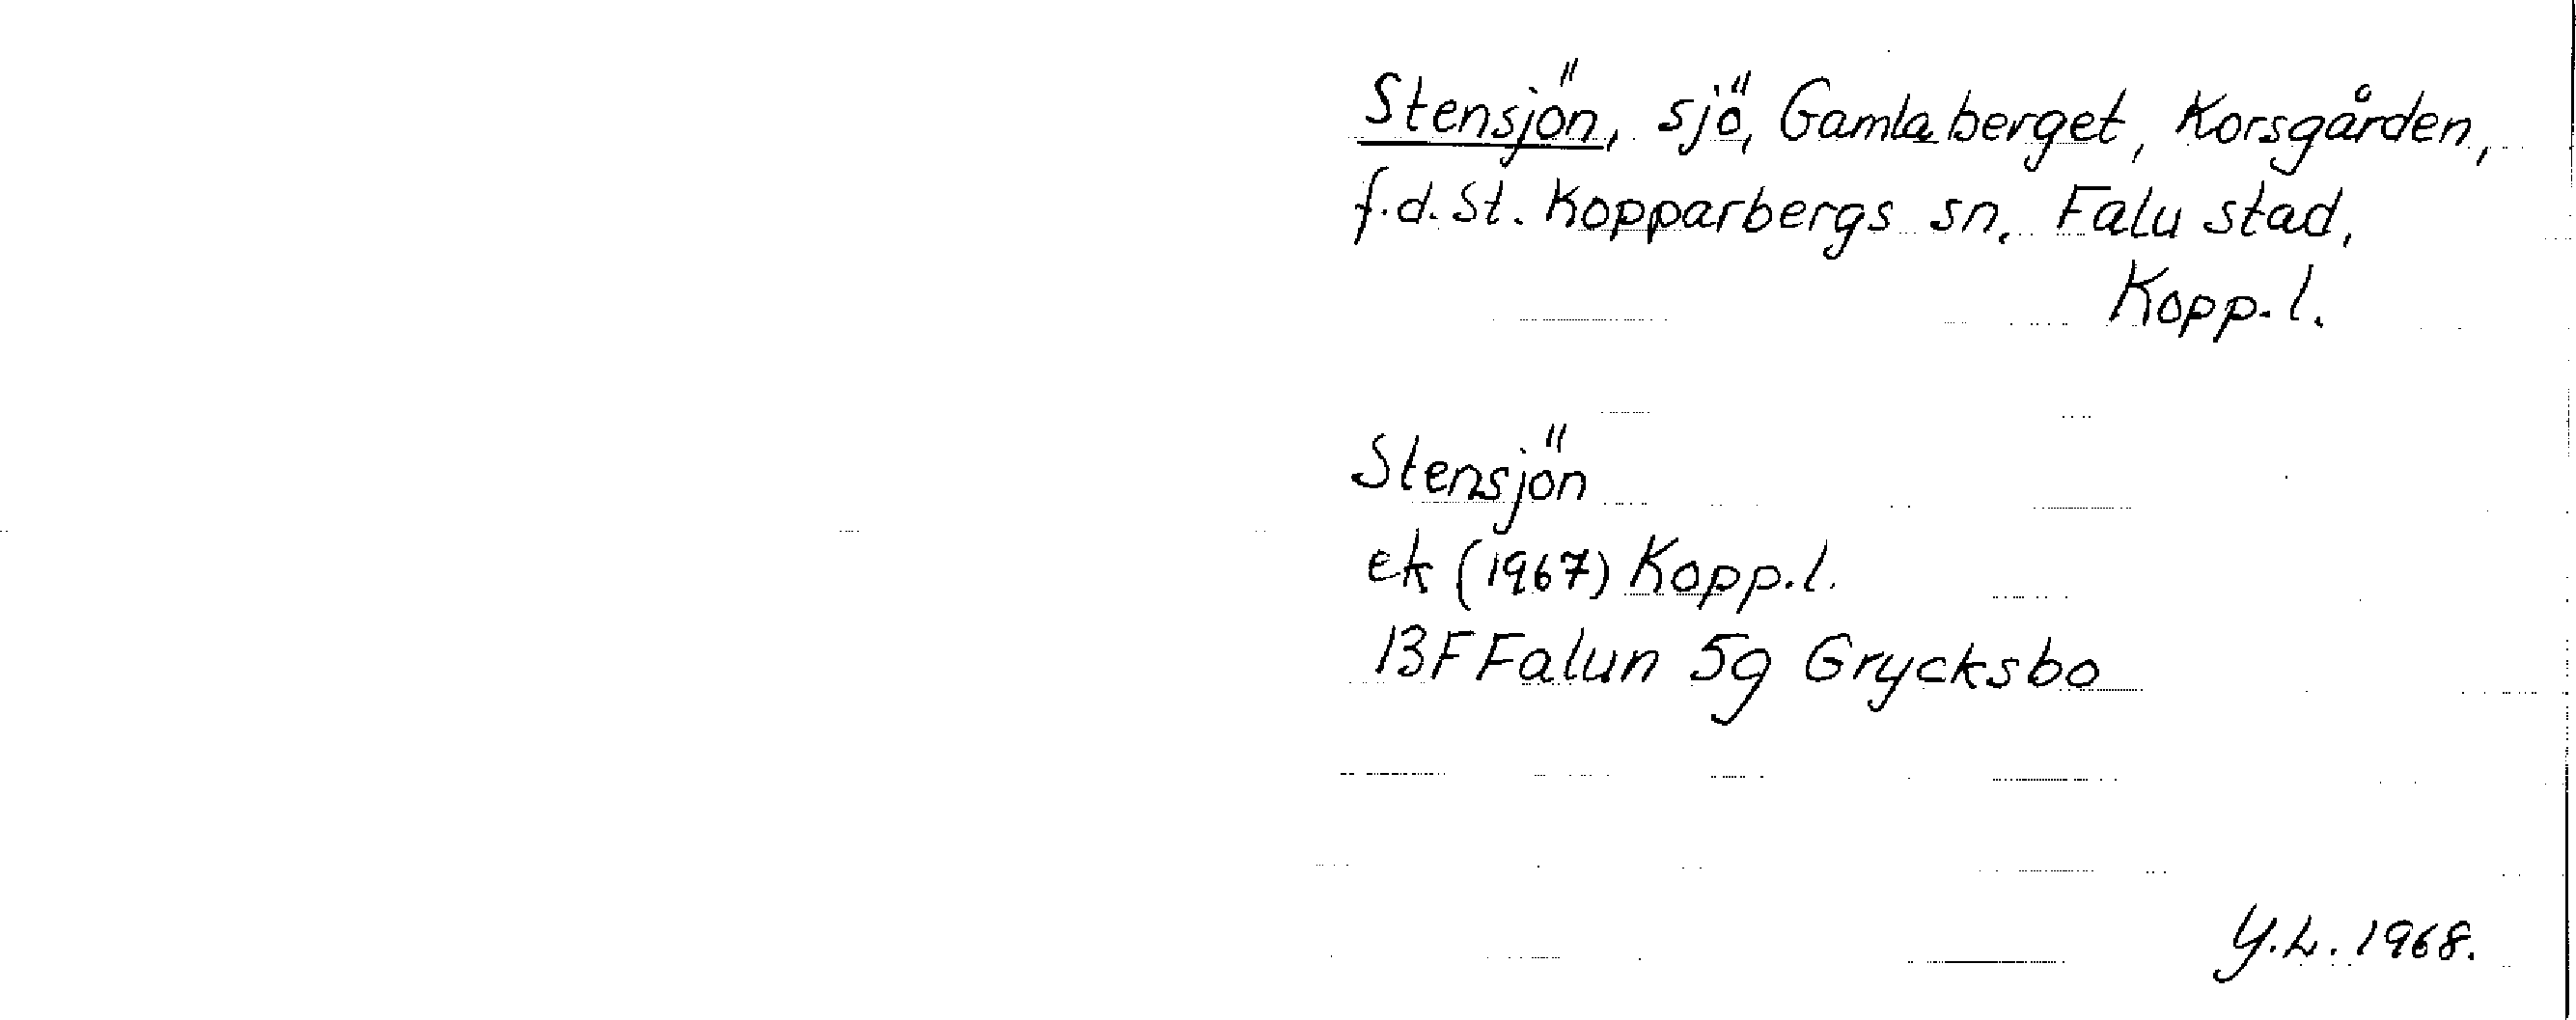 Stensjön, sjö, Gamla berget, Korsgården,
f.d. St. Kopparbergs sn. Falu stad,
Kopp. l.
Stensjön
ek (1967) Kopp. l.
13F Falun 5g Grycksbo
Y.L. 1968.